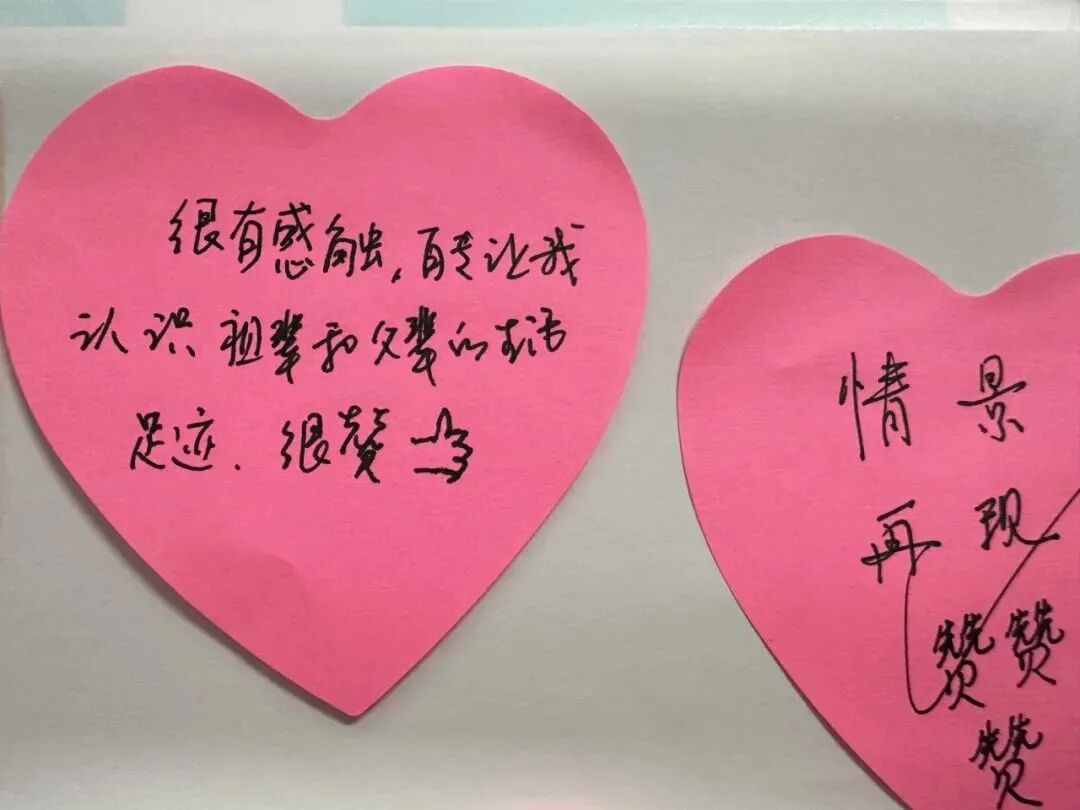 很有感触，再走让我
认识祖辈和父辈的生活
足迹．很赞
情景
再现
赞赞
赞